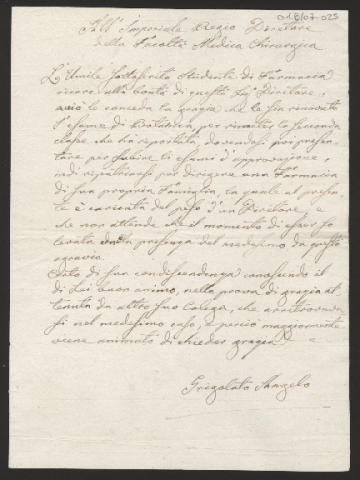 018/07-025
All' Imperiale Regio Direttore
della Facoltà Medica Chirurgica
L'Umile sottoscritto Studente di Farmacia
ricorre alla bontà di questo Direttore,
acciò le conceda la grazia che le sia rinnovato
l'esame di Botanica, per rimetter la seconda
classe che ha riportata, dovendosi poi presen-
tare per subire li esami d'approvazione,
indi ripatriarsi per dirigere una Farmacia
di sua propria Famiglia, la quale al presen-
te è caricata del peso d'un Direttore, e
che non attende che il momento di esser sol
levata dalla presenza del medesimo da questo
aggravio.
Certo di sua condiscendenza conoscendo il
di Lei buon animo, nella prova di grazia ot-
tenuta da altro suo Colega, che arritrovavasi
nel medesimo caso, e perciò maggiormente
viene animato di chieder grazia.
Gregolato Angelo